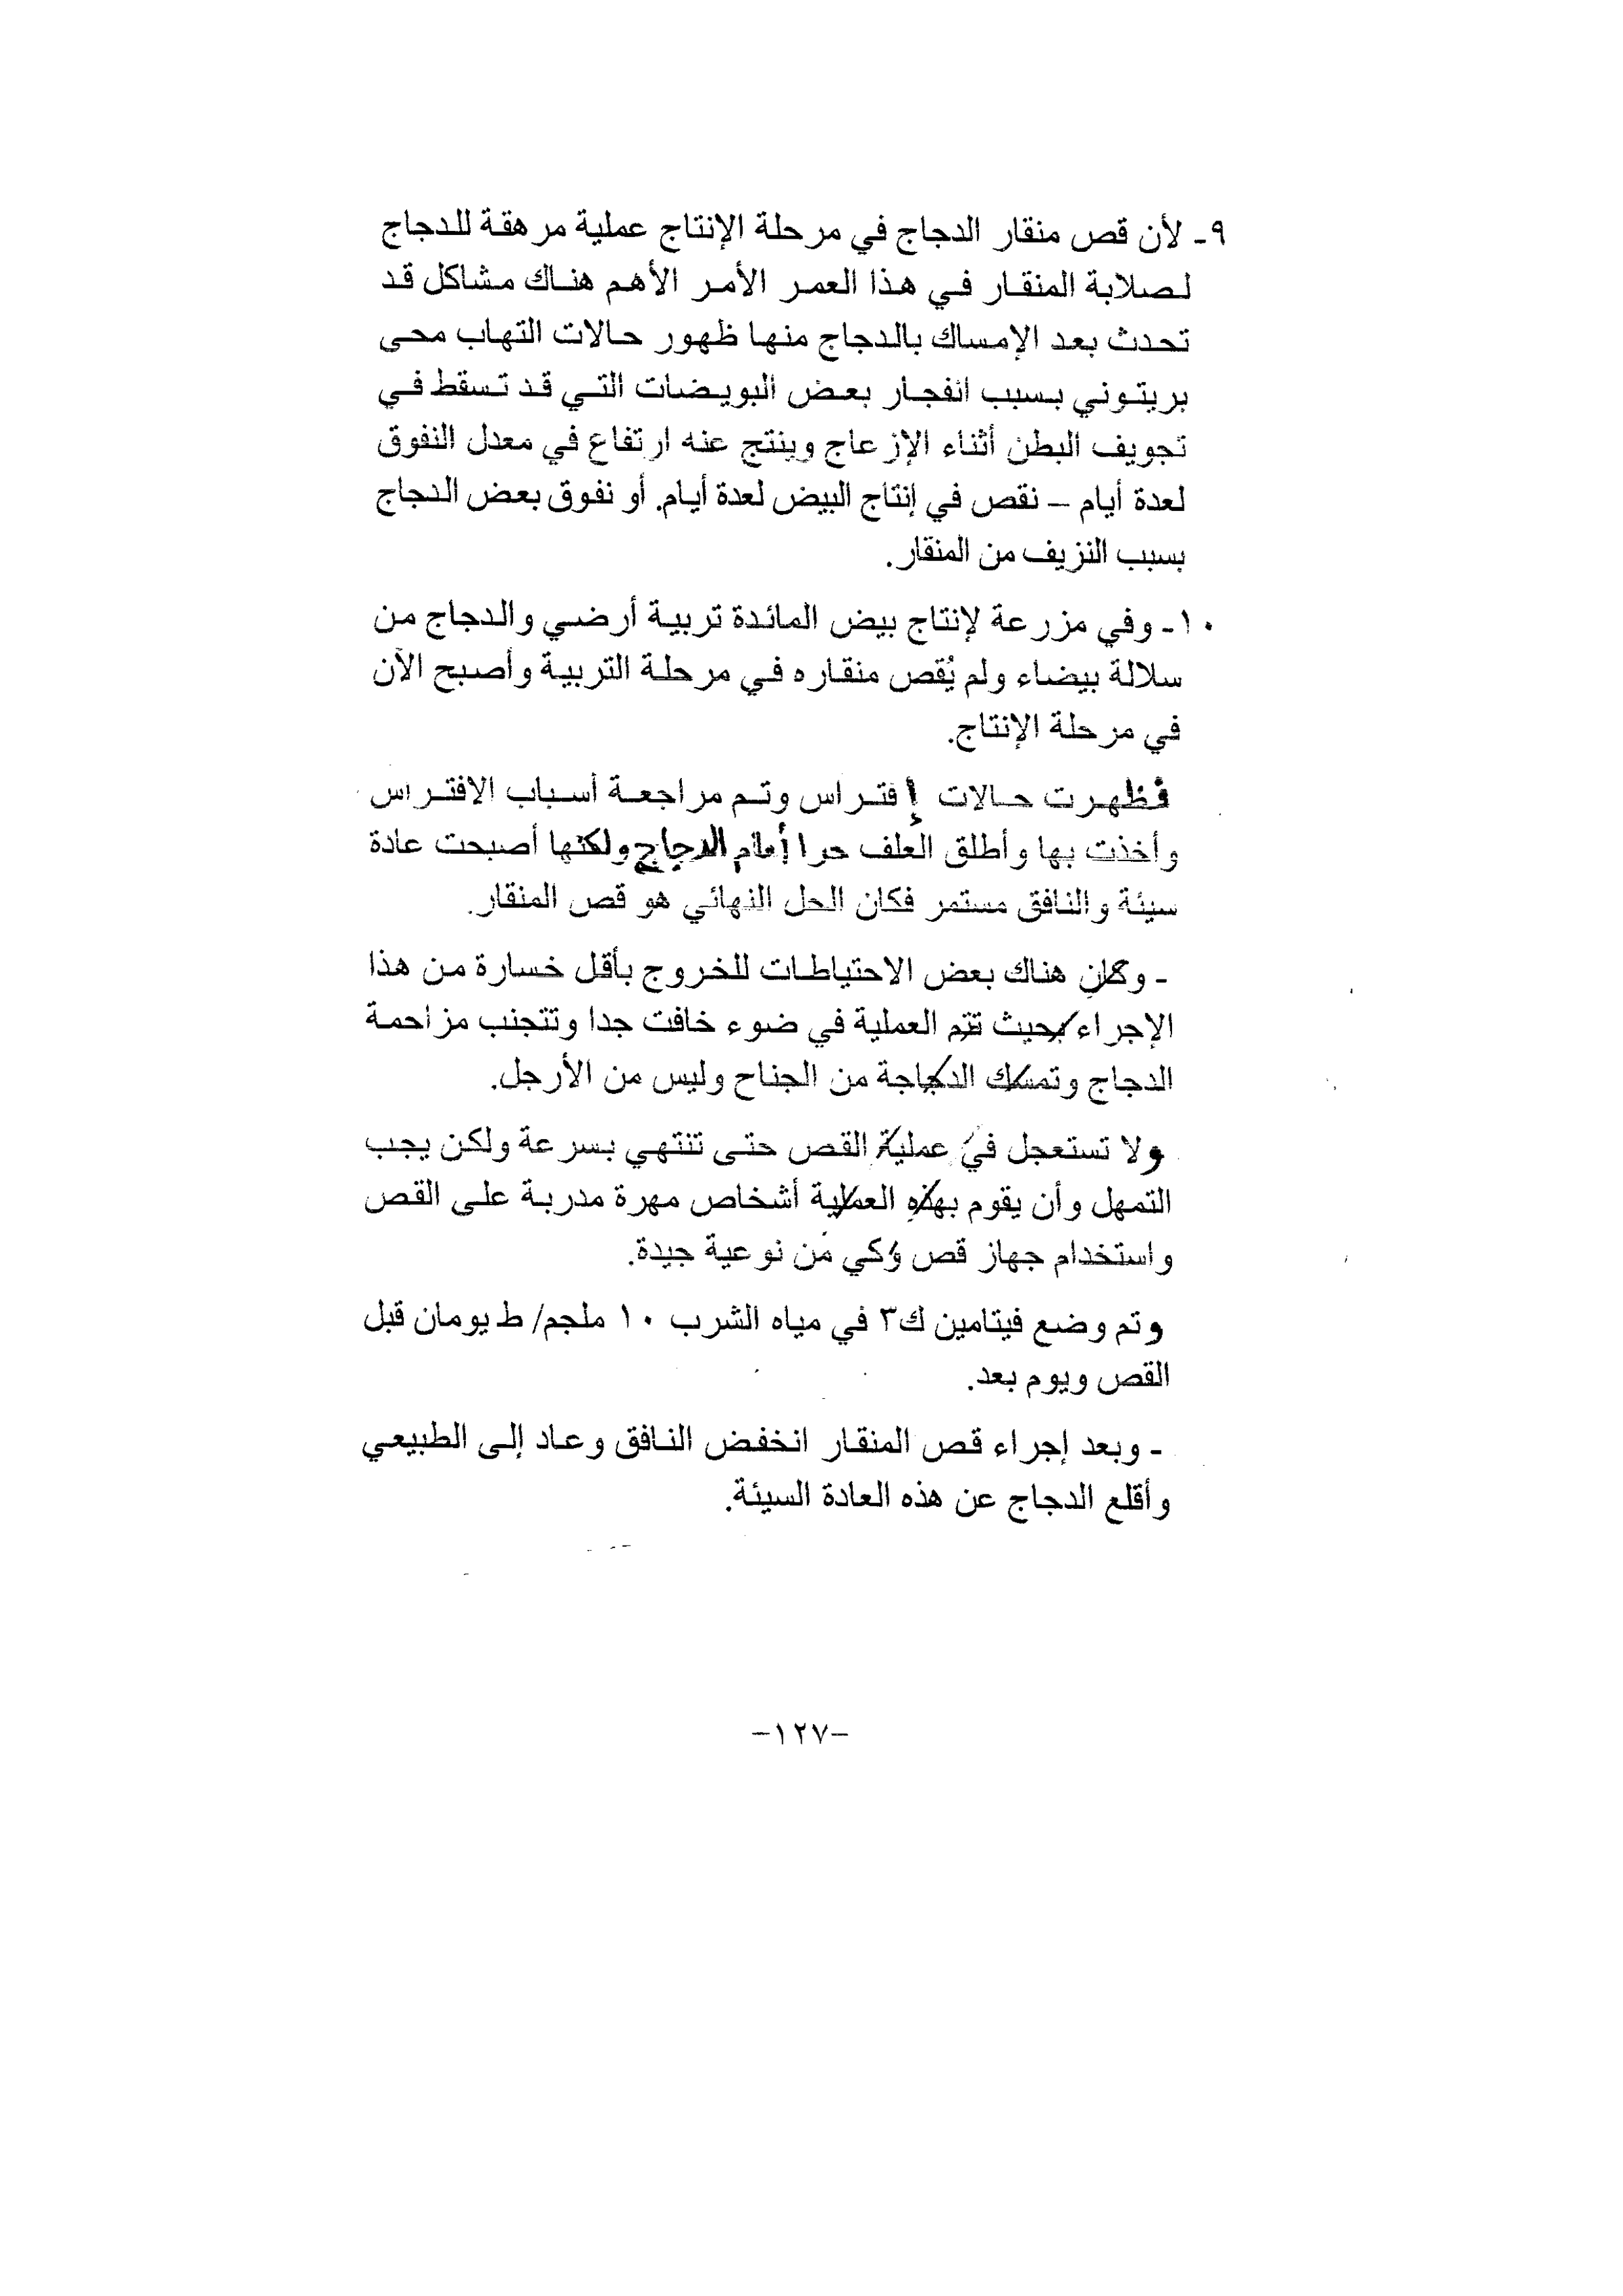 ٩- لأن قص منقار الدجاج في مرحلة الإنتاج عملية مرهقة للدجاج
لصلابة المنقار في هذا العمر الأمر الأهم هناك مشاكل قد
تحدث بعد الإمساك بالدجاج منها ظهور حالات التهاب محى
بريتوني بسبب انفجار بعض البويضات التي قد تسقط في
تجويف البطن أثناء الإزعاج وينتج عنه ارتفاع في معدل النفوق
لعدة أيام – نقص في إنتاج البيض لعدة أيام. أو نفوق بعض الدجاج
بسبب النزيف من المنقار.
١٠- وفي مزرعة لإنتاج بيض المائدة تربية أرضي والدجاج من
سلالة بيضاء ولم يُقص منقاره في مرحلة التربية وأصبح الآن
في مرحلة الإنتاج.
فظهرت حالات إفتراس وتم مراجعة أسباب الافتراس
وأخذت بها وأطلق العلف حرا أمام الدجاج ولكنها أصبحت عادة
سيئة والنافق مستمر فكان الحل النهائي هو قص المنقار.
- وكان هناك بعض الاحتياطات للخروج بأقل خسارة من هذا
الإجراء بحيث تتم العملية في ضوء خافت جدا وتتجنب مزاحمة
الدجاج وتمسك الدجاجة من الجناح وليس من الأرجل.
ولا تستعجل في عملية القص حتى تنتهي بسرعة ولكن يجب
التمهل وأن يقوم بهذه العملية أشخاص مهرة مدربة على القص
واستخدام جهاز قص وكي من نوعية جيدة.
وتم وضع فيتامين ك٣ في مياه الشرب ١٠ ملجم/ ط يومان قبل
القص ويوم بعد.
- وبعد إجراء قص المنقار انخفض النافق وعاد إلى الطبيعي
وأقلع الدجاج عن هذه العادة السيئة.
-١٢٧-